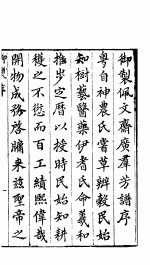 御製佩文齋廣羣芳譜序
粤自神農氏嘗草辨穀民始
知樹藝醫藥伊耆氏命羲和
推步定曆以授時民始知耕
穫之不愆而百工績熙偉哉
開物成務啓牖來兹聖帝之